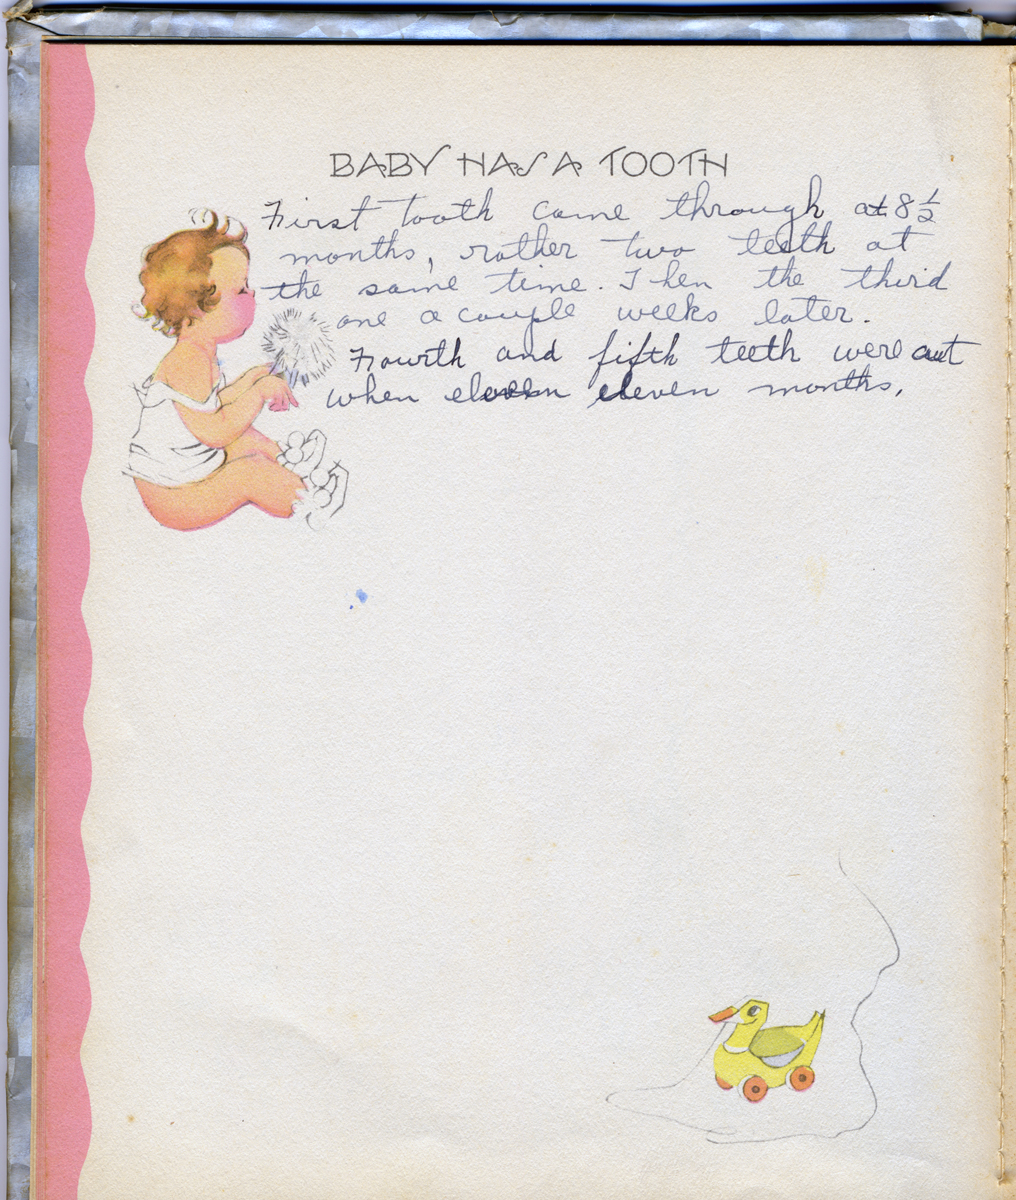 BABY HAS A TOOTH
First tooth came through at 8 1/2
months, rather two teeth at
the same time. Then the third
one a couple weeks later.
Fourth and fifth teeth were out
when eleven eleven months.